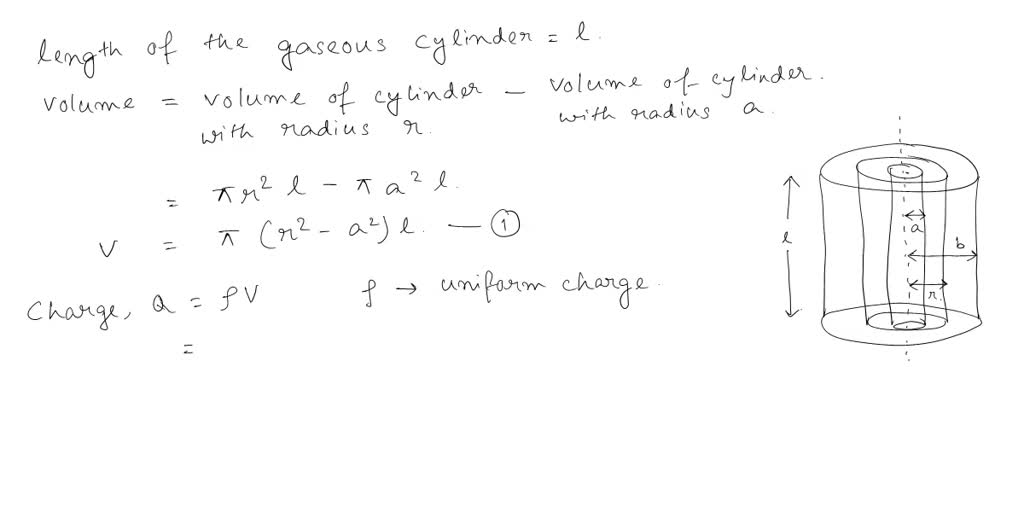 length of the gaseous cylinder = l.
volume = volume of cylinder with radius r. - volume of cylinder. with radius a.
= πr² l - πa² l.
V = π (r² - a²) l. — ①
Charge, Q = ρV ρ → uniform charge.
=
l
a
b
r.